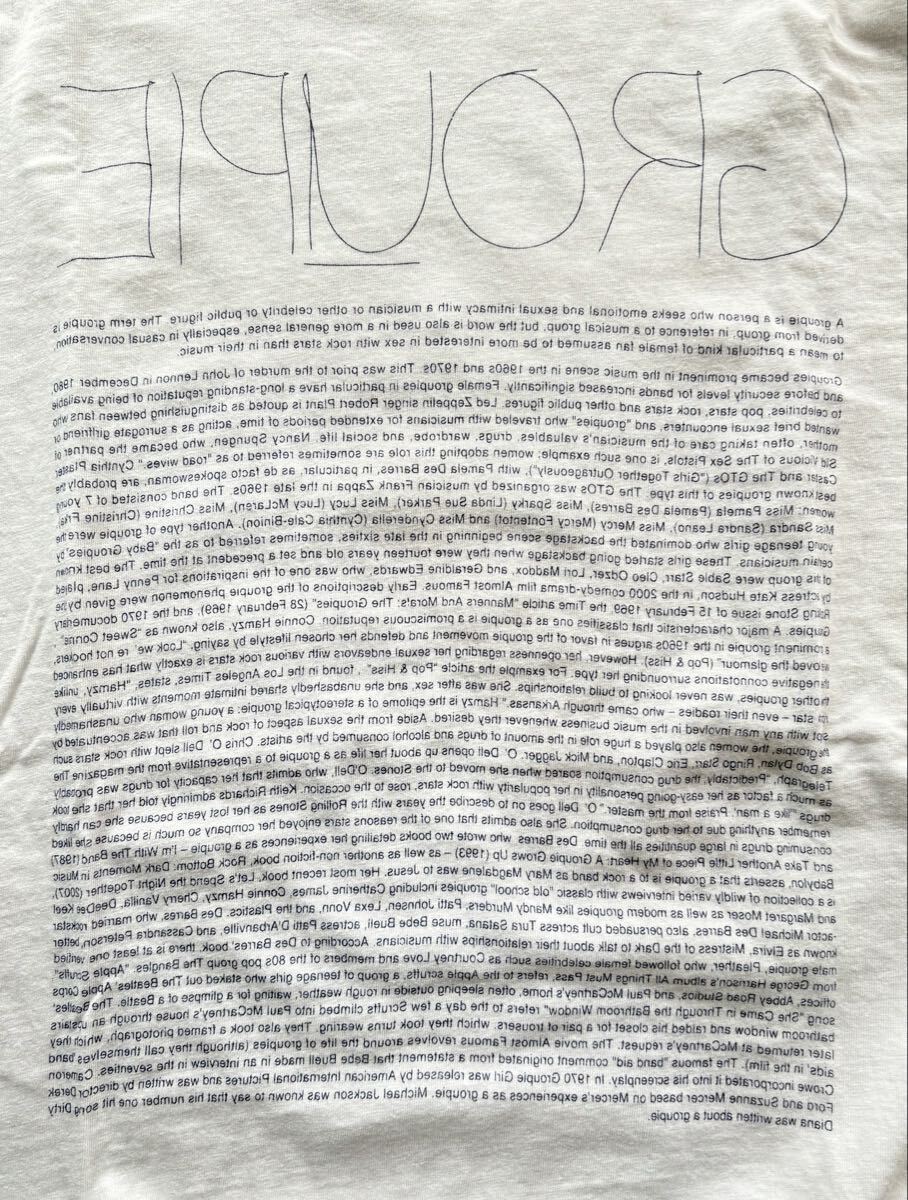 GROUPIE
A groupie is a person who seeks emotional and sexual intimacy with a musician or other celebrity or public figure. The term groupie is
derived from group, in reference to a musical group, but the word is also used in a more general sense, especially in casual conversation
to mean a particular kind of female fan assumed to be more interested in sex with rock stars than in their music.
Groupies became prominent in the music scene in the 1960s and 1970s. This was prior to the murder of John Lennon in December 1980
and before security levels for bands increased significantly. Female groupies in particular have a long-standing reputation of being available
to celebrities, pop stars, rock stars and other public figures. Led Zeppelin singer Robert Plant is quoted as distinguishing between fans who
wanted brief sexual encounters, and "groupies" who traveled with musicians for extended periods of time, acting as a surrogate girlfriend or
mother, often taking care of the musician's valuables, drugs, wardrobe, and social life. Nancy Spungen, who became the partner of
Sid Vicious of The Sex Pistols, is one such example; women adopting this role are sometimes referred to as "road wives." Cynthia Plaster
Caster and The GTOs ("Girls Together Outrageously"), with Pamela Des Barres, in particular, as de facto spokeswoman, are probably the
best known groupies of this type. The GTOs was organized by musician Frank Zappa in the late 1960s. The band consisted of 7 young
women: Miss Pamela (Pamela Des Barres), Miss Sparky (Linda Sue Parker), Miss Lucy (Lucy McLaren), Miss Christine (Christine Frka,
Miss Sandra (Sandra Leano), Miss Mercy (Mercy Fontentot) and Miss Cynderella (Cynthia Cale-Binion). Another type of groupie were the
young teenage girls who dominated the backstage scene beginning in the late sixties, sometimes referred to as the "Baby Groupies" by
certain musicians. These girls started going backstage when they were fourteen years old and set a precedent at the time. The best known
of this group were Sable Starr, Cleo Odzer, Lori Maddox, and Geraldine Edwards, who was one of the inspirations for Penny Lane, played
by actress Kate Hudson, in the 2000 comedy-drama film Almost Famous. Early descriptions of the groupie phenomenon were given by the
Rolling Stone issue of 15 February 1969, the Time article "Manners And Morals: The Groupies" (28 February 1969), and the 1970 documentary
Groupies. A major characteristic that classifies one as a groupie is a promiscuous reputation. Connie Hamzy, also known as "Sweet Connie",
a prominent groupie in the 1960s argues in favor of the groupie movement and defends her chosen lifestyle by saying, "Look we' re not hookers,
loved the glamour" (Pop & Hiss). However, her openness regarding her sexual endeavors with various rock stars is exactly what has enhanced
the negative connotations surrounding her type. For example the article "Pop & Hiss" , found in the Los Angeles Times, states, "Hamzy, unlike
other groupies, was never looking to build relationships. She was after sex, and she unabashedly shared intimate moments with virtually every
star – even their roadies – who came through Arkansas." Hamzy is the epitome of a stereotypical groupie: a young woman who unashamedly
with any man involved in the music business whenever they desired. Aside from the sexual aspect of rock and roll that was accentuated by
the groupie, the women also played a huge role in the amount of drugs and alcohol consumed by the artists. Chris O' Dell slept with rock stars such
as Bob Dylan, Ringo Starr, Eric Clapton, and Mick Jagger. O' Dell opens up about her life as a groupie to a representative from the magazine The
Telegraph, "Predictably, the drug consumption soared when she moved to the Stones. O'Dell, who admits that her capacity for drugs was probably
as much a factor as her easy-going personality in her popularity with rock stars, rose to the occasion. Keith Richards admiringly told her that she took
drugs "like a man." Praise from the master." O' Dell goes on to describe the years with the Rolling Stones as her lost years because she can hardly
remember anything due to her drug consumption. She also admits that one of the reasons stars enjoyed her company so much is because she liked
consuming drugs in large quantities all the time Des Barres, who wrote two books detailing her experiences as a groupie – I'm With The Band (1987)
and Take Another Little Piece of My Heart: A Groupie Grows Up (1993) – as well as another non-fiction book, Rock Bottom: Dark Moments in Music
Babylon, asserts that a groupie is to a rock band as Mary Magdalene was to Jesus. Her most recent book, Let's Spend the Night Together (2007),
is a collection of wildly varied interviews with classic "old school" groupies including Catherine James, Connie Hamzy, Cherry Vanilla, DeeDee Keel
and Margaret Moser as well as modern groupies like Mandy Murders, Patti Johnsen, Lexa Vonn, and the Plastics. Des Barres, who married rockstar
-actor Michael Des Barres, also persuaded cult actress Tura Satana, muse Bebe Buell, actress Patti D'Arbanville, and Cassandra Peterson, better
known as Elvira, Mistress of the Dark to talk about their relationships with musicians. According to Des Barres' book, there is at least one verified
male groupie, Pleather, who followed female celebrities such as Courtney Love and members of the 80s pop group The Bangles. "Apple Scruffs"
from George Harrison's album All Things Must Pass, refers to the Apple scruffs, a group of teenage girls who staked out The Beatles' Apple Corps
offices, Abbey Road Studios, and Paul McCartney's home, often sleeping outside in rough weather, waiting for a glimpse of a Beatle. The Beatles'
song "She Came in Through the Bathroom Window" refers to the day a few Scruffs climbed into Paul McCartney's house through an upstairs
bathroom window and raided his closet for a pair of trousers, which they took turns wearing. They also took a framed photograph, which they
later returned at McCartney's request. The movie Almost Famous revolves around the life of groupies (although they call themselves 'band
aids' in the film). The famous "band aid" comment originated from a statement that Bebe Buell made in an interview in the seventies. Cameron
Crowe incorporated it into his screenplay. In 1970 Groupie Girl was released by American International Pictures and was written by director Derek
Ford and Suzanne Mercer based on Mercer's experiences as a groupie. Michael Jackson was known to say that his number one hit song Dirty
Diana was written about a groupie.